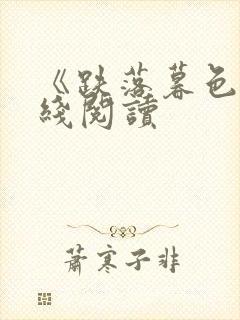 《跌落暮色
綫閱讀
蕭寒子非